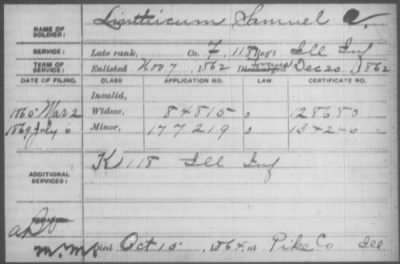 NAME OF SOLDIER: Linthicum Samuel A.
SERVICE: Late rank, Co. F, 118 Reg't Ill Inf
TERM OF SERVICE: Enlisted Nov 7, 1862 Dec 20, 1862
DATE OF FILING. CLASS APPLICATION NO. LAW. CERTIFICATE NO.
Invalid,
1865 Mar 2 Widow, 84815 128680
1869 July 6 Minor, 177219
ADDITIONAL SERVICES: K 118 Ill Inf
REMARKS:
Died Oct 10, 1864, at Pike Co Ill